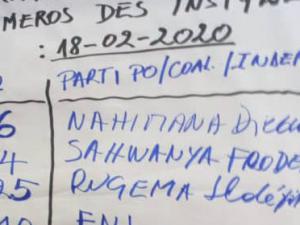 MEROS DES INSTRU
: 18-02-2020
PARTI PO/COAL./INDEP
6 NAHIMANA Dieu
4 SAHWANYA FRODE
25 RUGEMA Ildéph
FNL